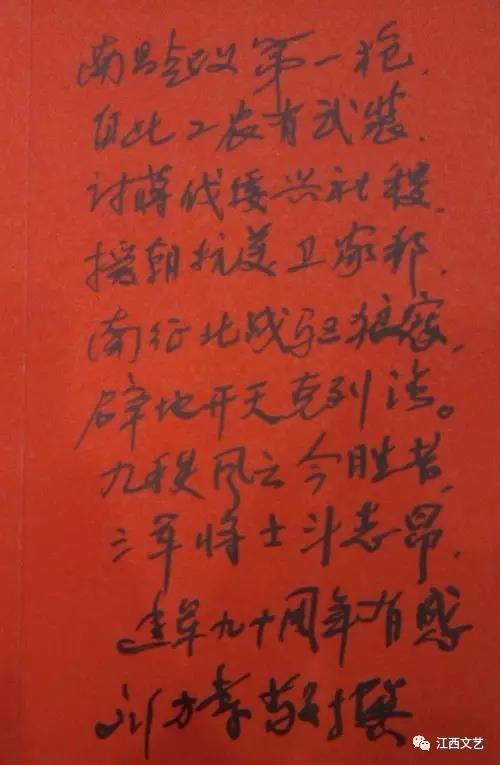 南昌起义第一枪,
自此工农有武装,
讨蒋伐倭兴社稷,
援朝抗美卫家邦,
南征北战驱狼寇,
辟地开天克列强。
九秩风云今胜昔,
三军将士斗志昂,
建军九十周年有感
刘方 敬撰
江西文艺